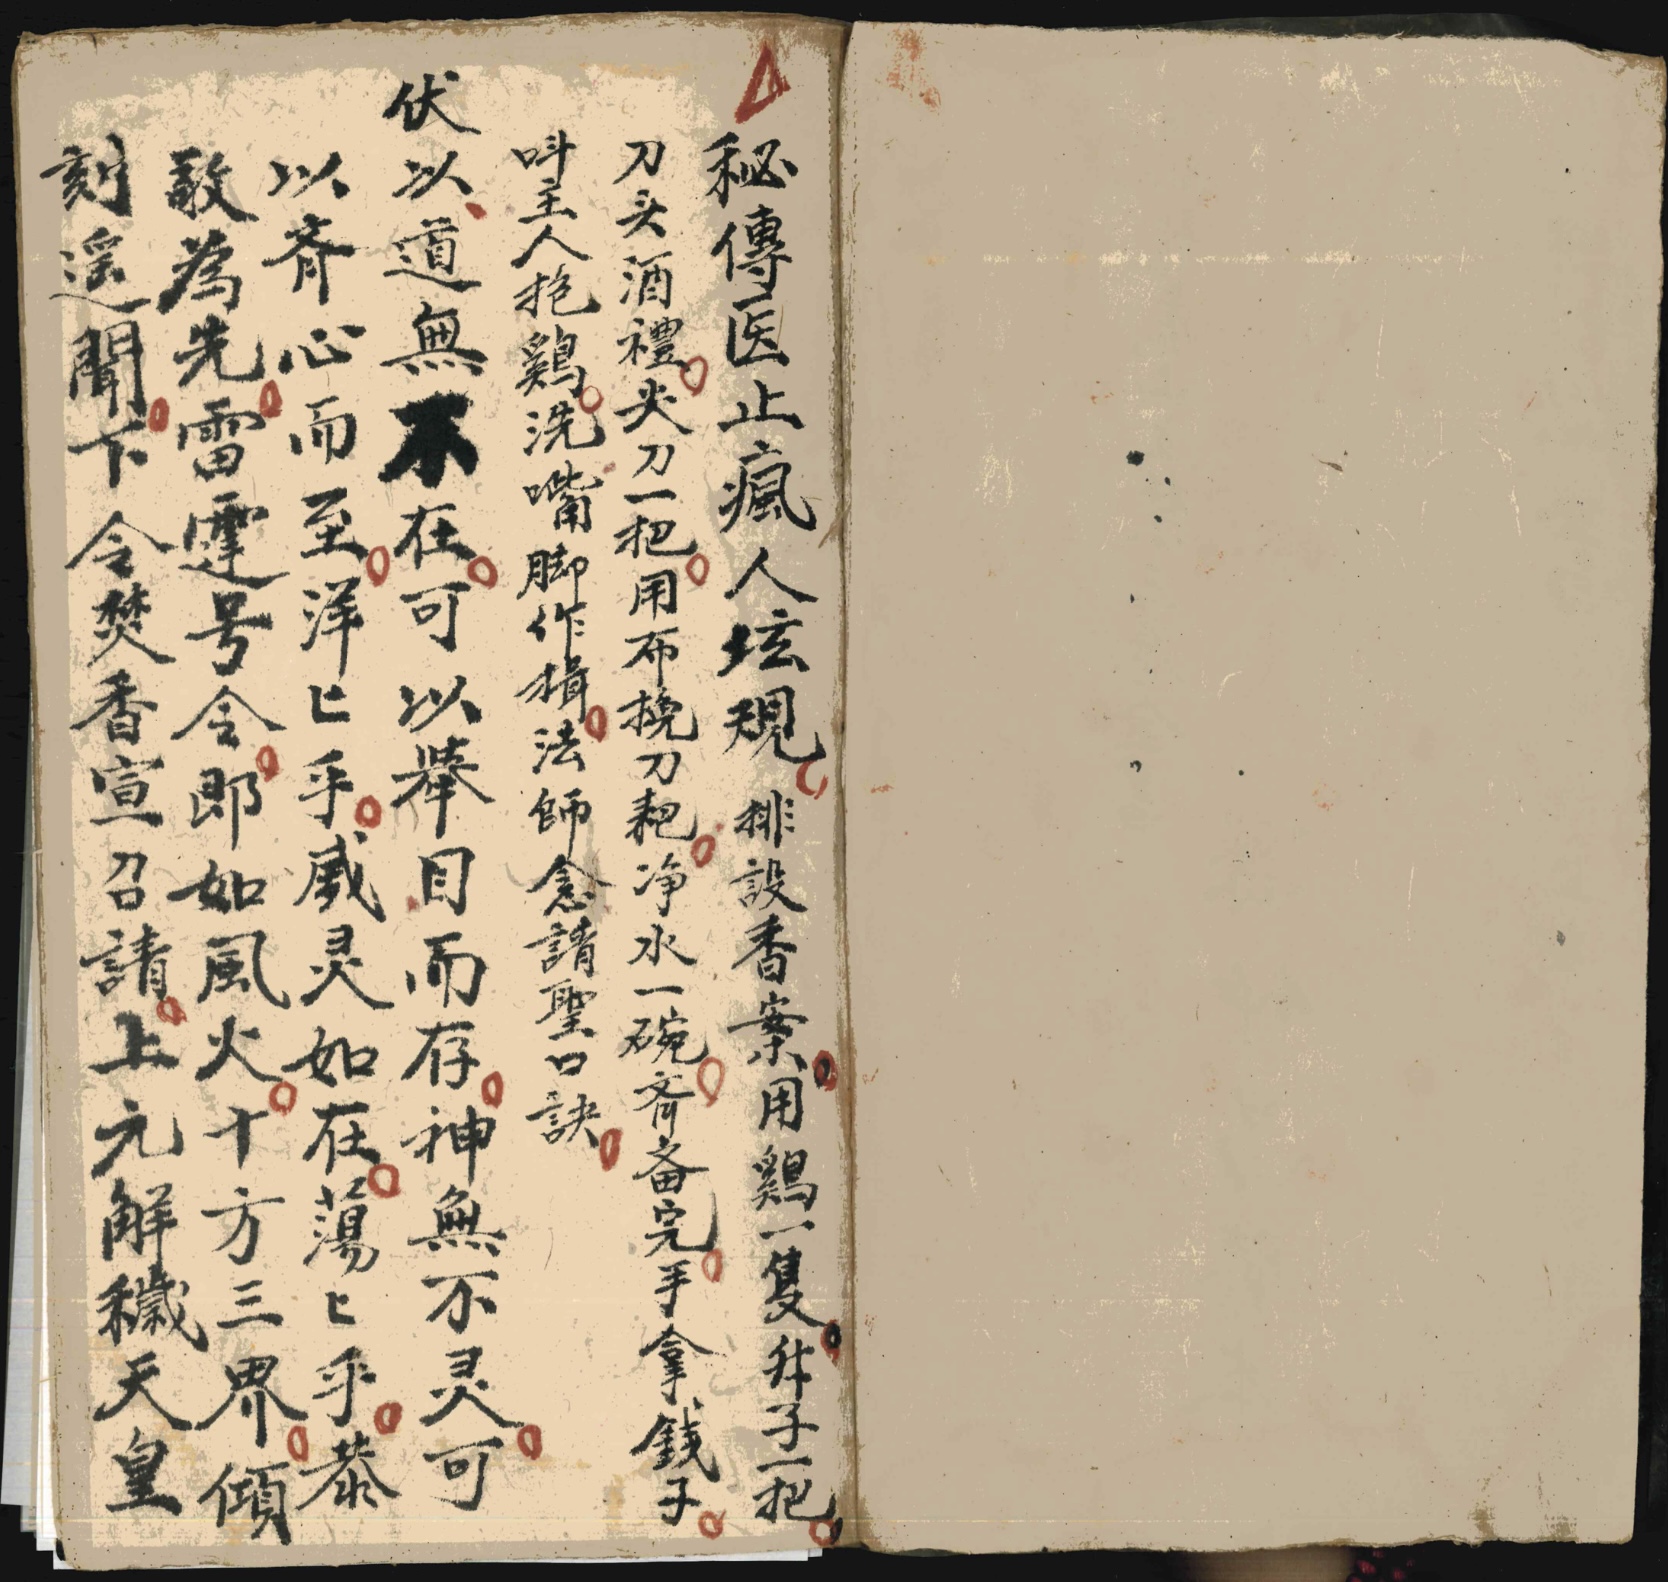 秘傳医止瘋人坛規 排設香案用鷄一隻牀子一把
刀头酒禮尖刀一把用布挽刀耙净水一碗齐俻完手拿錢子
呌主人抱鷄洗嘴脚作揖法師念請聖口訣
伏以道無不在可以舉目而存神無不灵可
以齐心而至洋匕乎威灵如在蕩匕乎恭
敬為先雷霆号令即如風火十方三界傾
刻遥聞下令焚香宣召請上元解穢天皇